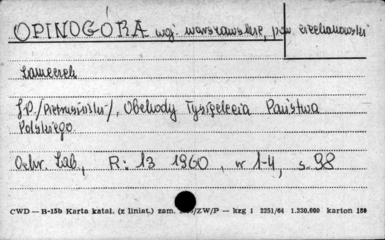 OPINOGÓRA woj. warszawskie, pow. ciechanowski
Zameczek
J.P. /Pietrusiński/, Obchody Tysiąclecia Państwa
Polskiego.
Ochr. Zab., R: 13 1960, nr 1-4, s. 98
CWD — B-15b Karta katal. (z liniat.) zam. /ZW/P — kzg 1 2251/64 1.230.000 karton 180